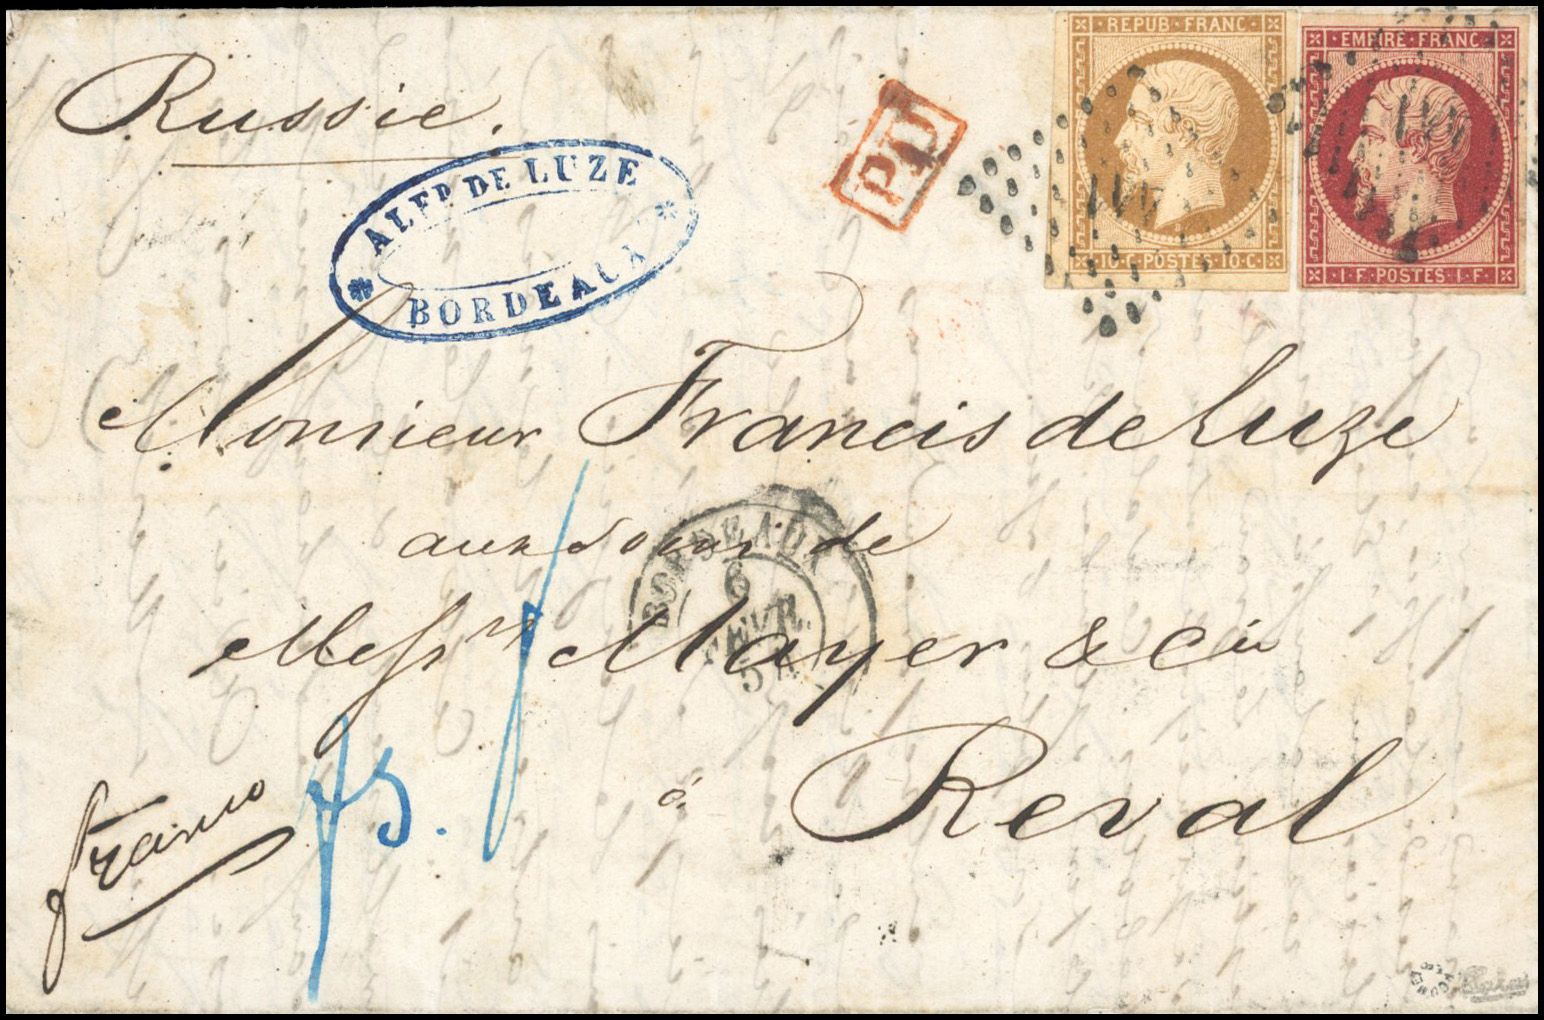 Russie.
ALFD DE LUZE
BORDEAUX
PD
REPUB FRANC
10·C·POSTES·10·C
EMPIRE FRANC
1·F·POSTES·1·F
Monsieur Francis de Luze
aux soins de
BORDEAUX
6
FEVR.
Messrs Mayer & Cie
à Reval
franco